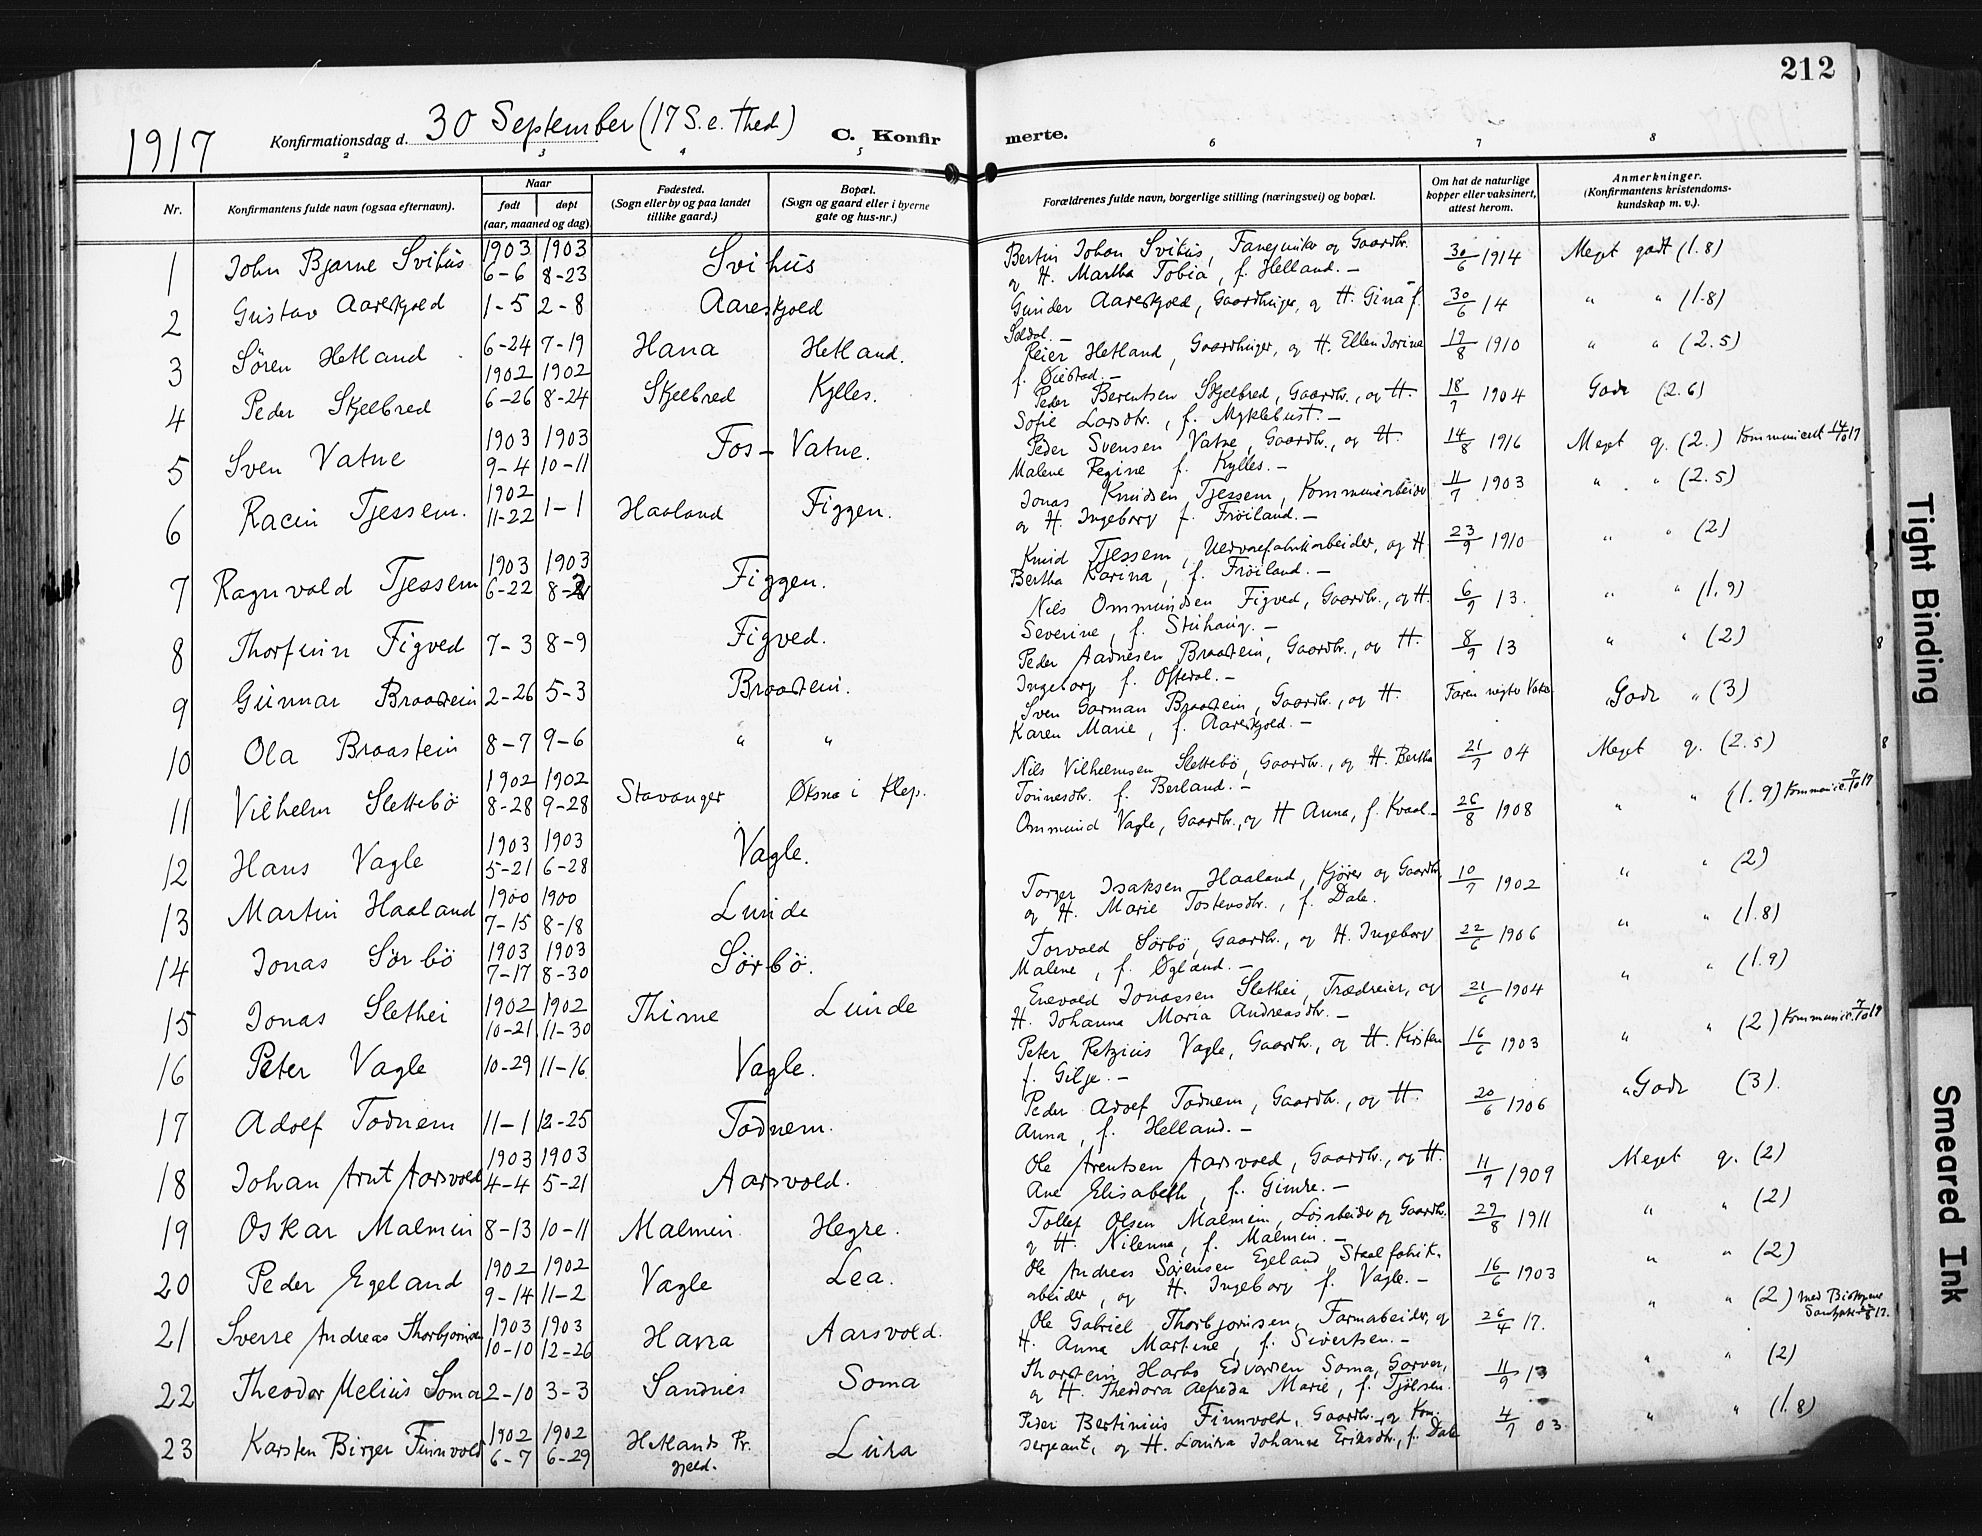 212
1917 Konfirmationsdag d. 30 September (17 S. e. Thed.) C. Konfir merte.
2 3 4 5 6 7 8
Nr. Konfirmantens fulde navn (ogsaa efternavn). Naar født døpt (aar, maaned og dag) Fødested. (Sogn eller by og paa landet tillike gaard.) Bopæl. (Sogn og gaard eller i byerne gate og hus-nr.) Forældrenes fulde navn, borgerlige stilling (næringsvei) og bopæl. Om hat de naturlige kopper eller vaksinert, attest herom. Anmerkninger. (Konfirmantens kristendomskundskap m. v.).
1 John Bjarne Svihus 1903 6-6 1903 8-23 Svihus Bertin Johan Svihus, og Gaardbr.
og H. Martha Tobia, f. Helland. – 30/6 1914 Meget godt (1.8)
2 Gustav Aareskjold 1-5 2-8 Aareskjold Gunder Aareskjold, Gaardbruger, og H. Gina f.
Seldal. – 30/6 14 " " (1.8)
3 Søren Hetland 6-24 7-19 Hana Hetland. Peier Hetland, Gaardbruger, og H. Ellen Jorine
f. Øiestad. – 19/8 1910 " " (2.5)
4 Peder Skjelbred 1902 6-26 1902 8-24 Skjelbred Kylles. Peder Berentsen Skjelbred, Gaardbr., og H.
Sofie Larsdtr., f. Myklebust. – 18/7 1904 Godt (2.6)
5 Sven Vatne 1903 9-4 1903 10-11 Fos-Vatne. Peder Svensen Vatne, Gaardbr., og H.
Malene Regine f. Kylles. – 14/8 1916 Meget g. (2.)
6 Racin Tjessem. 1902 11-22 1-1 Haaland Figgen. Jonas Knudsen Tjessem, Kommunearbeider
og H. Ingeborg f. Frøiland. – 11/7 1903 " " (2.5)
7 Ragnvald Tjessem 1903 6-22 1903 Figgen. Knud Tjessem, Uldvarefabrikarbeider, og H
Bertha Karina, f. Frøiland. – 23/9 1910 " " (2)
8 Thorfinn Figved 7-3 8-9 Figved. Nils Ommundsen Figved, Gaardbr., og H.
Severine, f. Stuhaug. – 6/9 13. " " (1.9)
9 Gunnar Braastein 2-26 5-3 Braastein. Peder Aadnesen Braastein, Gaardbr., og H.
Ingeborg f. Oftedal. – 8/9 13 " " (2)
10 Ola Braastein 8-7 9-6 " " Sven Gorman Braastein, Gaardbr., og H.
Karen Marie, f. Aareskjold. – Faren Godt " (3)
11 Vilhelm Slettebö 1902 8-28 1902 9-28 Stavanger Øksna i Klep. Nils Vilhelmsen Slettebö, Gaardbr., og H. Bertha
Tønnesdtr. f. Berland. – 21/7 04 Meget g. (2.5)
12 Hans Vagle 1903 5-21 1903 6-28 Vagle. Ommund Vagle, Gaardbr., og H Anna, f. Kvaal. – 26/8 1908 " " (1.9)
13 Martin Haaland 1900 7-15 1900 8-18 Lunde Torger Isaksen Haaland, Kjører og Gaardbr,
og H. Marie Tostensdtr., f. Dale. 10/7 1902 " " (2)
14 Jonas Sørbö 1903 7-17 1903 8-30 Sørbö. Torvald Sørbö, Gaardbr., og H. Ingeborg
Malene, f. Øgland. – 22/6 1906 " " (1.8)
15 Jonas Slethei 1902 10-21 1902 11-30 Thime Lunde Enevald Jonassen Slethei, Trædreier, og
H. Johanna Maria Andreasdtr. – 21/6 1904 " " (1.9)
16 Peter Vagle 10-29 11-16 Vagle. Peter Retzius Vagle, Gaardbr., og H. Kirsten
f. Gilje. – 16/6 1903 " " (2)
17 Adolf Todnem 11-1 12-25 Todnem. Peder Adolf Todnem, Gaardbr., og H.
Anna, f. Helland. – 20/6 1906 " Godt (3).
18 Johan Arnt Aarsvold 1903 4-4 1903 5-21 Aarsvold. Ole Arentsen Aarsvold, Gaardbr., og H.
Ane Elisabeth, f. Gimre. – 11/9 1909 Meget g. (2)
19 Oskar Malmin 8-13 10-11 Malmin Hegre. Tollef Olsen Malmin, Løsarbeider og Gaardbr.
og H. Nilenna, f. Malmin. – 29/8 1911 " " (2)
20 Peder Egeland 1902 9-14 1902 11-2 Vagle Lea. Ole Andreas Sørensen Egeland, Staalfabrik-
arbeider, og H. Ingeborg f. Vagle. – 16/6 1903 " " (2)
21 Sverre Andreas Thorbjørnsen 1903 10-10 1903 12-26 Hana Aarsvold. Ole Gabriel Thorbjørnsen, Farmarbeider, og
H. Anna Martine, f. Sivertsen. – 26/4 17. " " (2) med Biskopens
22 Theodor Melius Soma 2-10 3-3 Sandnes Soma Thorstein Harbo Edvardsen Soma, Garver,
og H. Theodora Alfreda Marie, f. Tjølsen. 11/9 13 " " (2)
23 Karsten Birger Finnvold 1902 6-7 1902 6-29 Hetlands Pr.gjeld. Lura Peder Bertinius Finnvold, Gaardbr. og Kom.
sergeant, og H. Laura Johanne Eriksdtr., f. Dale 4/7 03. " " (1.8)
Tight Binding
Smeared Ink